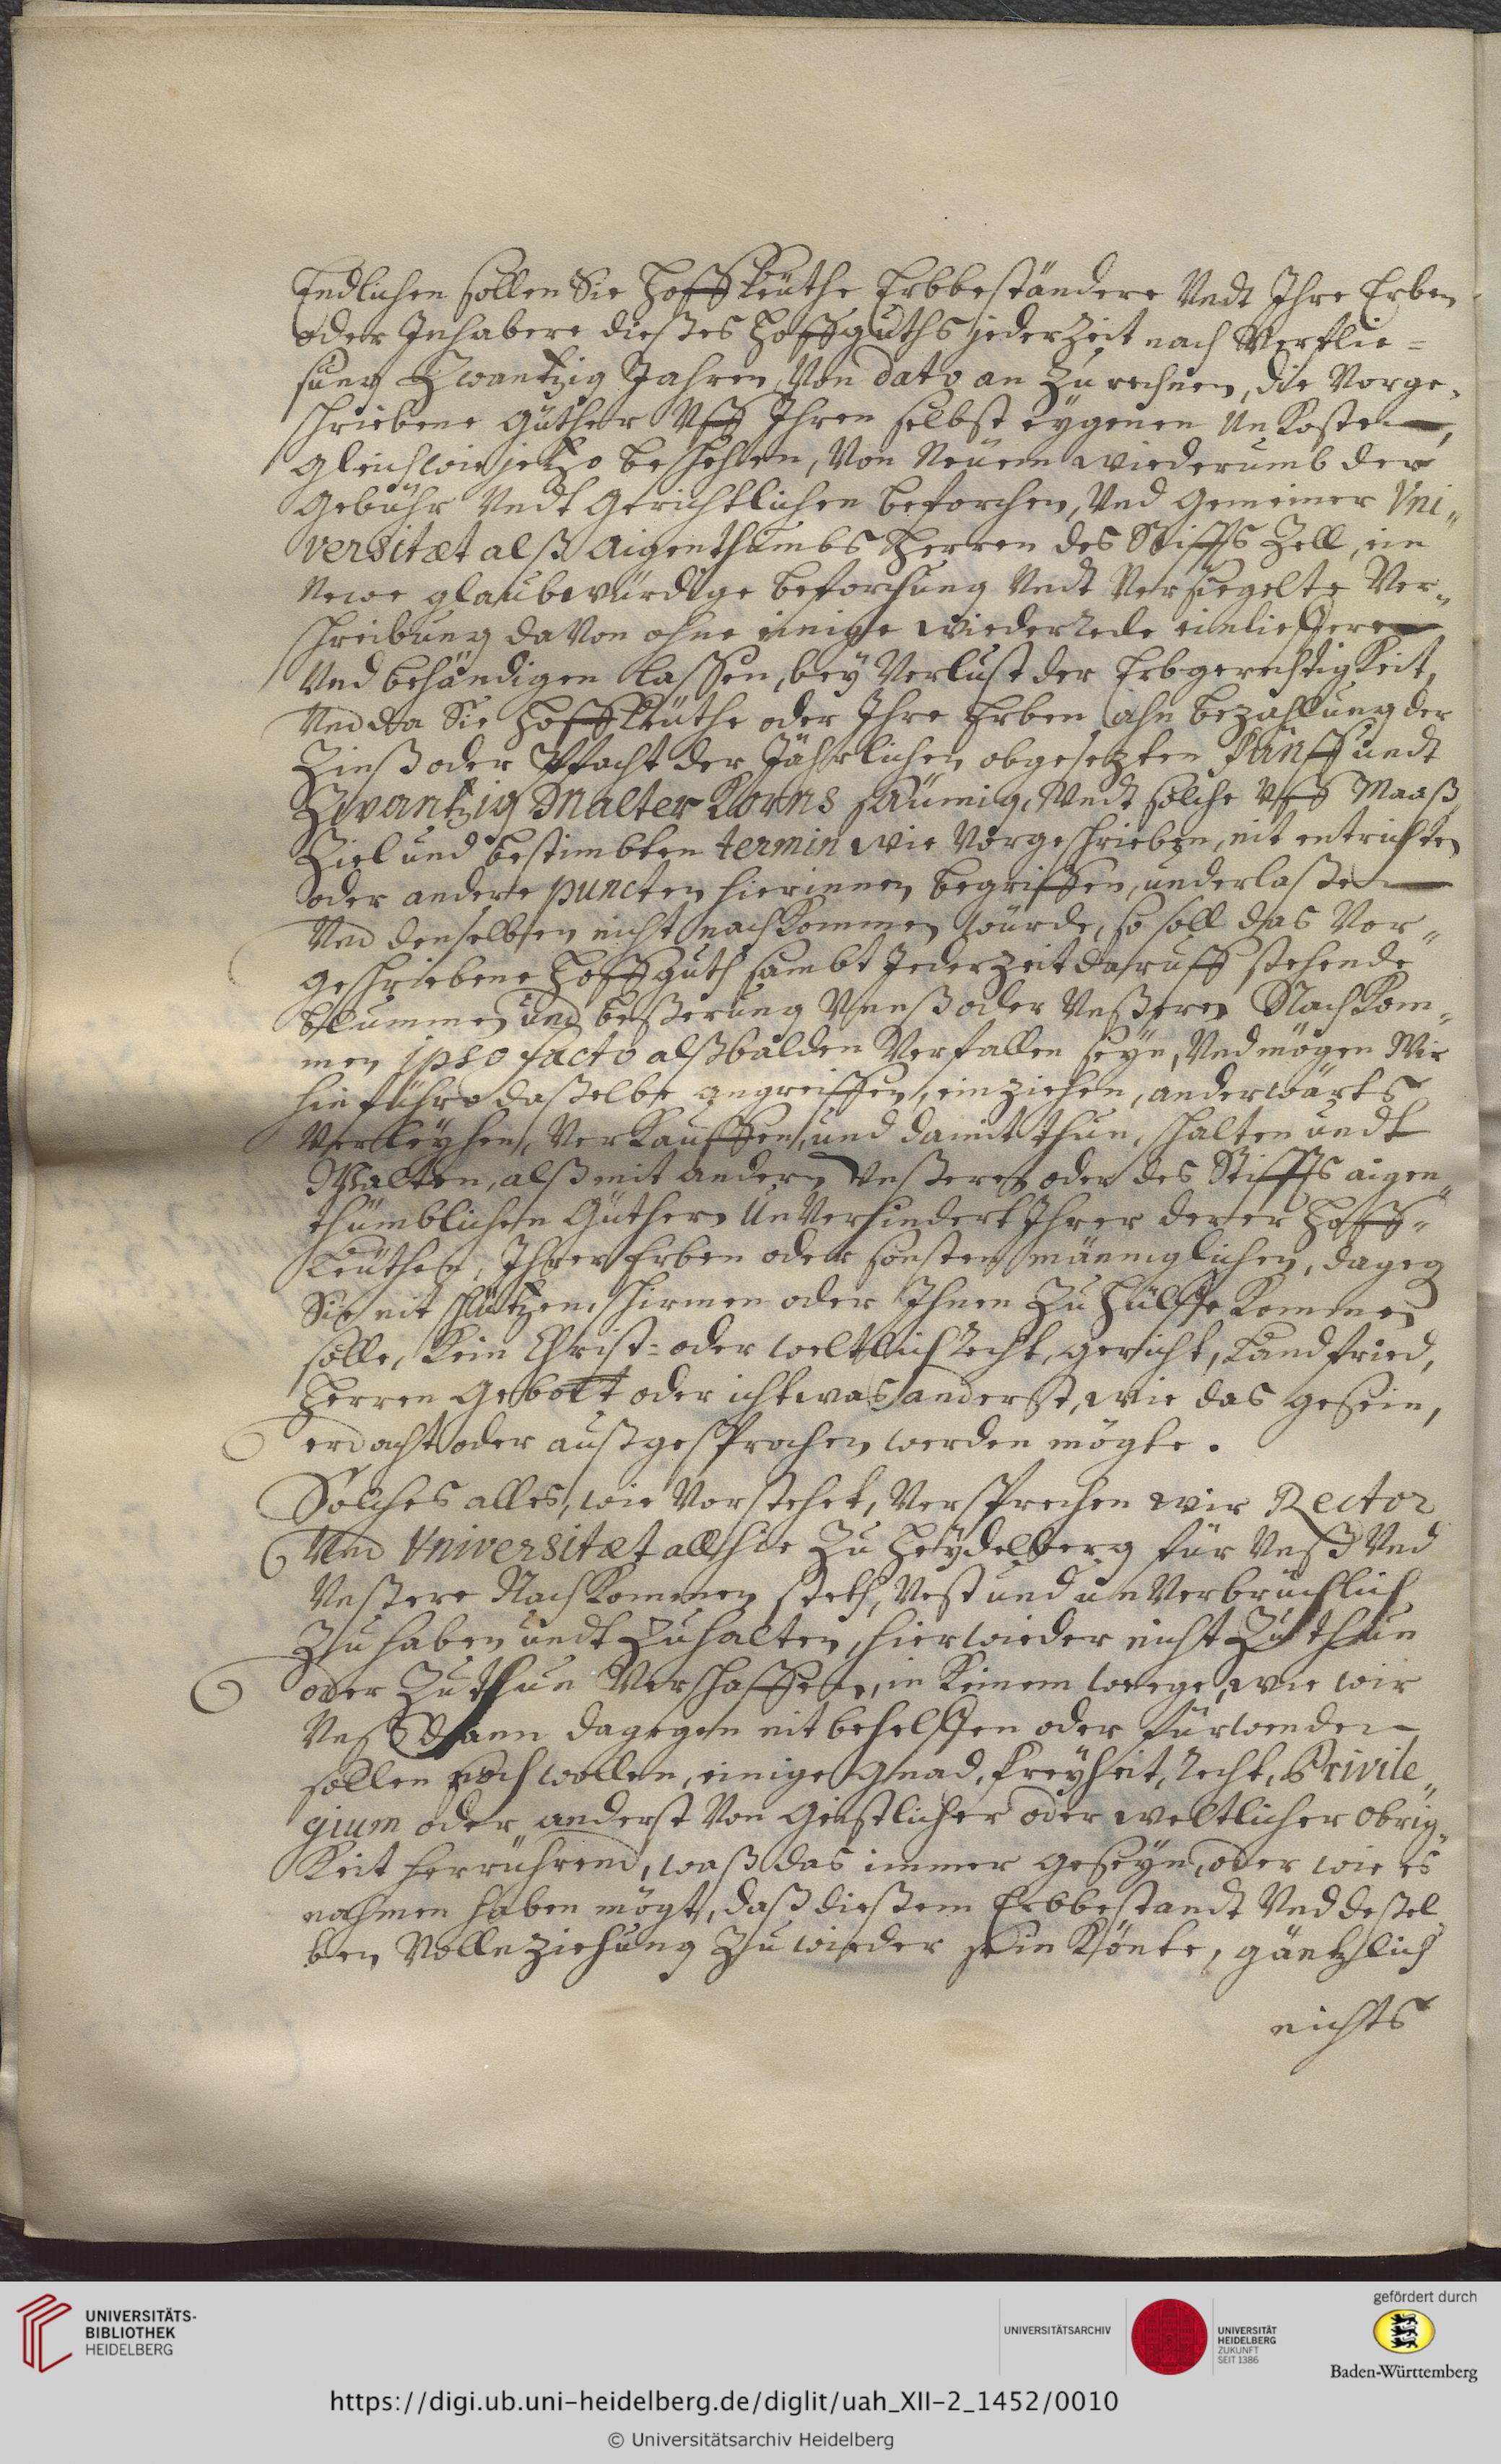 Endlichen sollen Sie Hoffleüthe Erbbeständere Undt Ihre Erben
oder Inhabere dießes Hoffguths jederzeit nach Verflie=
sung Zwantzig Jahren, Von dato an Zu rechnen, die Vorge„
schriebene Güther Vff Ihren selbst eygenen Unkosten,
gleichwie jetzo beschehen, Von Neuem wiederumb der
Gebühr Undt Gerichtlichen beforchen, Und Gemeiner Uni„
versitæt alß Aigenthumbs Herren des Stiffts Zell, ein
Newe glaubwürdige beforchung Undt Versiegelte Ver„
schreibung daVon ohne einige wiederrede einlieffern
Und behändigen lassen, bey Verlust der Erbgerechtigkeit,
Und da Sie Hoffleüthe oder Ihre Erben ahn bezahlung der
Zinß oder Pfacht der Jährlichen obgesetzten Fünff undt
Zwantzig Malter Korns säumig, Undt solche Vff Maaß,
Ziel und bestimbten termin wie Vorgeschrieben, nit entrichten
oder andere puncten hierinnen begriffen, underlaßen
Und denselben nicht nachkommen würde, so soll das Vor„
geschriebene Hoffguth sambt Jederzeit daruff stehende
blummen und beßerung Unnß oder Unßeren Nachkom„
men ipso facto alßbalden Verfallen seyn, Und mögen Wir
hinführo daßelbe angreiffen, einziehen, anderwärts
Verleyhen, Verkauffen, und damit thun, schalten undt
Walten, alß mit andern Unßeren oder des Stiffts aigen„
thümblichen Güthern UnVerhindert Ihrer derer Hoff„
Leüthen, Ihrer Erben oder sonsten männiglichen, dagegen
Sie nit schützen, schirmen oder Ihnen Zu Hülffe kommen
solle, kein Christ= oder weltlich recht, gericht, Landfried,
Herren Gebott oder ichtwas anderst, wie das gesein,
erdacht oder außgesprochen werden mögte.
Solches alles, wie Vorstehet, Versprechen wir Rector
Und Universitæt allhie Zu Heydelberg für Unß Und
Unßere Nachkommen steth, Vest und unVerbrüchlich
Zu haben undt Zu halten, hierwieder nicht Zu thun
oder Zu thun Verschaffen, in keinem weege, wie wir
Unß dann dagegen nit behelffen oder fürwenden
sollen noch wollen, einige Gnad, freyheit, recht, Privile„
gium oder anderst Von Geistlicher oder weltlicher obrig„
keit herrührend, waß das immer geseyn, oder wie es
nahmen haben mögt, daß dießem Erbbestandt Und deßel
ben Vollnziehung Zu wieder sein könte, gäntzlich
nichts
UNIVERSITÄTS-
BIBLIOTHEK
HEIDELBERG
UNIVERSITÄTSARCHIV
UNIVERSITÄT
HEIDELBERG
ZUKUNFT
SEIT 1386
gefördert durch
Baden-Württemberg
https://digi.ub.uni-heidelberg.de/diglit/uah_XII-2_1452/0010
© Universitätsarchiv Heidelberg